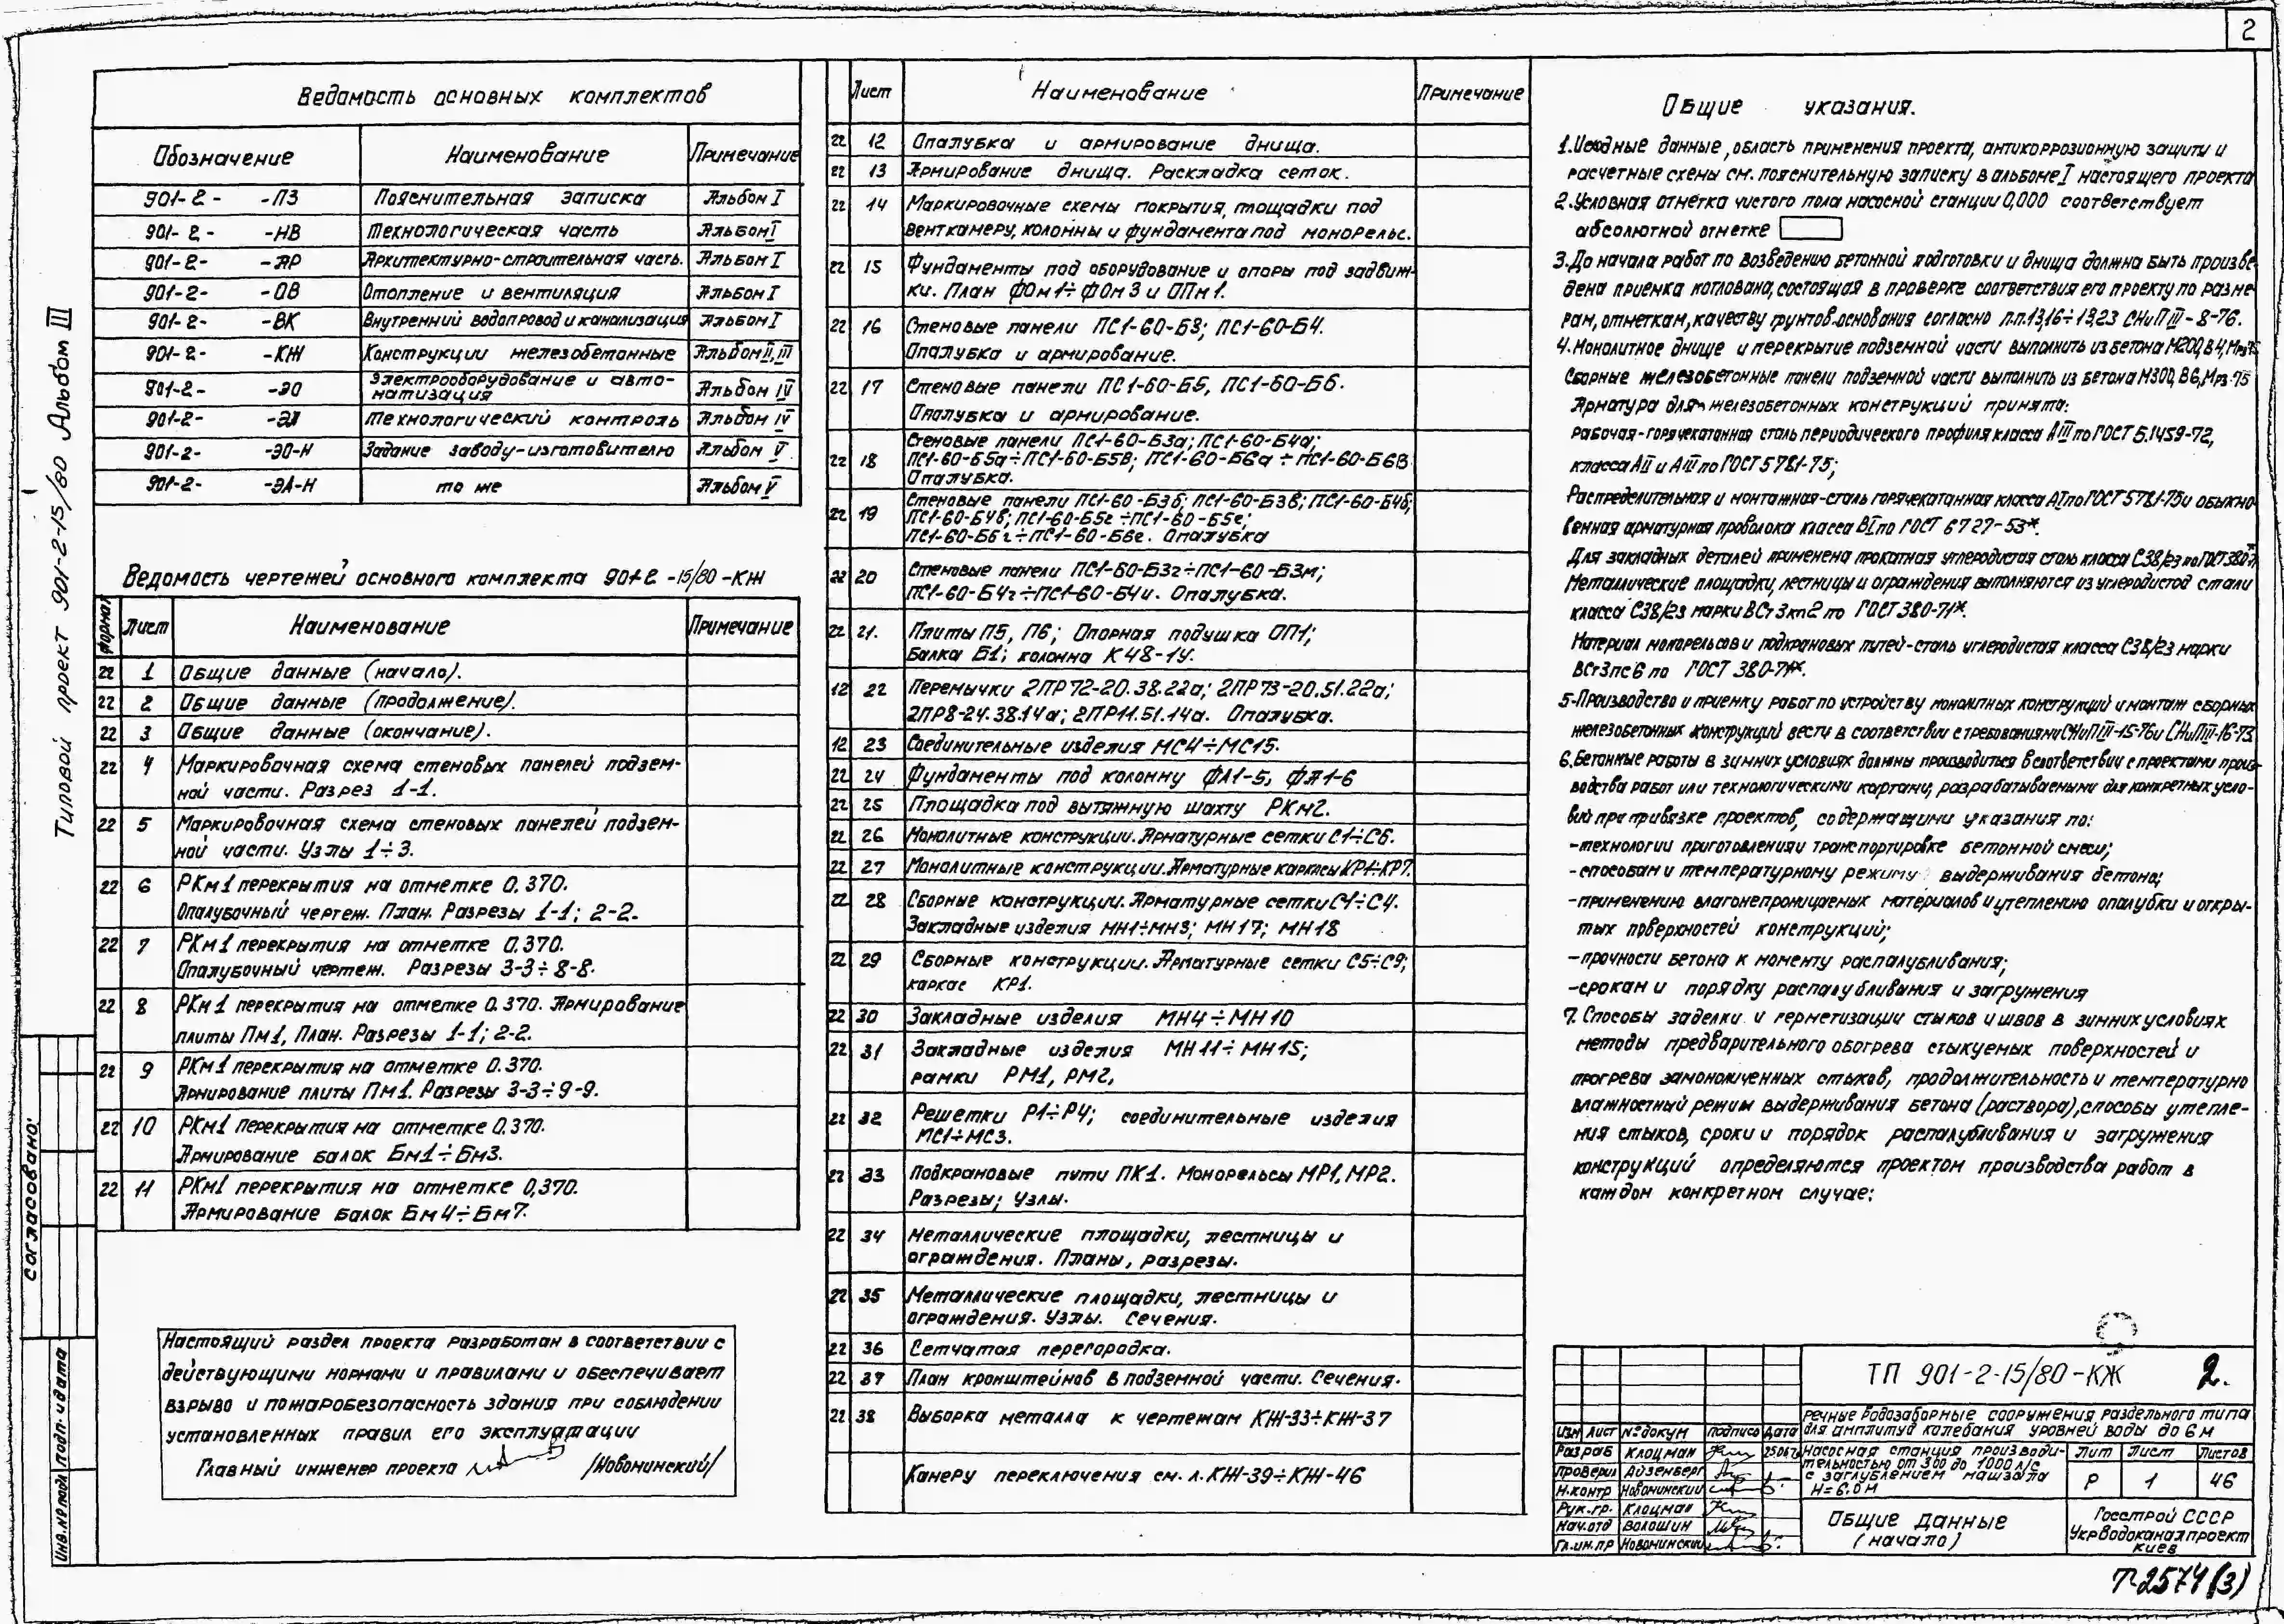 2
Типовой проект 901-2-15/80 Альбом III
Ведомость основных комплектов
Обозначение Наименование Примечание
901-2- -ПЗ Пояснительная записка Альбом I
901-2- -НВ Технологическая часть Альбом I
901-2- -АР Архитектурно-строительная часть. Альбом I
901-2- -ОВ Отопление и вентиляция Альбом I
901-2- -ВК Внутренний водопровод и канализация Альбом I
901-2- -КЖ Конструкции железобетонные Альбом II, III
901-2- -ЭО Электрооборудование и авто-
матизация Альбом IV
901-2- -ЭА Технологический контроль Альбом IV
901-2- -ЭО-Н Задание заводу-изготовителю Альбом V
901-2- -ЭА-Н то же Альбом V
Ведомость чертежей основного комплекта 901-2-15/80-КЖ
Формат Лист Наименование Примечание
22 1 Общие данные (начало).
22 2 Общие данные (продолжение).
22 3 Общие данные (окончание).
22 4 Маркировочная схема стеновых панелей подзем-
ной части. Разрез 1-1.
22 5 Маркировочная схема стеновых панелей подзем-
ной части. Узлы 1÷3.
22 6 РКм1 перекрытия на отметке 0.370.
Опалубочный чертеж. План. Разрезы 1-1; 2-2.
22 7 РКм1 перекрытия на отметке 0.370.
Опалубочный чертеж. Разрезы 3-3÷8-8.
22 8 РКм1 перекрытия на отметке 0.370. Армирование
плиты Пм1, План. Разрезы 1-1; 2-2.
22 9 РКм1 перекрытия на отметке 0.370.
Армирование плиты Пм1. Разрезы 3-3÷9-9.
22 10 РКм1 перекрытия на отметке 0.370.
Армирование балок Бм1÷Бм3.
22 11 РКм1 перекрытия на отметке 0,370.
Армирование балок Бм4÷Бм7.
Настоящий раздел проекта разработан в соответствии с
действующими нормами и правилами и обеспечивает
взрыво и пожаробезопасность здания при соблюдении
установленных правил его эксплуатации
Главный инженер проекта /Новоминский/
Согласовано:
Инв.№ подл Подп. и дата
Лист Наименование Примечание
22 12 Опалубка и армирование днища.
22 13 Армирование днища. Раскладка сеток.
22 14 Маркировочные схемы покрытия, площадки под
венткамеру, колонны и фундамента под монорельс.
22 15 Фундаменты под оборудование и опоры под задвиж-
ки. План ФОм1÷ФОм3 и ОПм1.
22 16 Стеновые панели ПС1-60-Б3; ПС1-60-Б4.
Опалубка и армирование.
22 17 Стеновые панели ПС1-60-Б5, ПС1-60-Б6.
Опалубка и армирование.
22 18 Стеновые панели ПС1-60-Б3а; ПС1-60-Б4а;
ПС1-60-Б5а÷ПС1-60-Б5в; ПС1-60-Б6а÷ПС1-60-Б6в
Опалубка.
22 19 Стеновые панели ПС1-60-Б3б; ПС1-60-Б3в; ПС1-60-Б4б;
ПС1-60-Б4в; ПС1-60-Б5г÷ПС1-60-Б5е;
ПС1-60-Б6г÷ПС1-60-Б6е. Опалубка
22 20 Стеновые панели ПС1-60-Б3г÷ПС1-60-Б3м;
ПС1-60-Б4г÷ПС1-60-Б4и. Опалубка.
22 21. Плиты П5, П6; Опорная подушка ОП1;
балка Б1; колонна К48-1У.
12 22 Перемычки 2ПР72-20.38.22а; 2ПР73-20.51.22а;
2ПР8-24.38.14а; 2ПР11.51.14а. Опалубка.
12 23 Соединительные изделия МС4÷МС15.
22 24 Фундаменты под колонну ФА1-5, ФА1-6
22 25 Площадка под вытяжную шахту РКм2.
22 26 Монолитные конструкции. Арматурные сетки С1÷С6.
22 27 Монолитные конструкции. Арматурные каркасы КР1÷КР7.
22 28 Сборные конструкции. Арматурные сетки С1÷С4.
Закладные изделия МН1÷МН3; МН17; МН18
22 29 Сборные конструкции. Арматурные сетки С5÷С9;
каркас КР1.
22 30 Закладные изделия МН4÷МН10
22 31 Закладные изделия МН11÷МН15;
рамки РМ1, РМ2,
22 32 Решетки Р1÷Р4; соединительные изделия
МС1÷МС3.
22 33 Подкрановые пути ПК1. Монорельсы МР1, МР2.
Разрезы; Узлы.
22 34 Металлические площадки, лестницы и
ограждения. Планы, разрезы.
22 35 Металлические площадки, лестницы и
ограждения. Узлы. Сечения.
22 36 Сетчатая перегородка.
22 37 План кронштейнов в подземной части. Сечения.
22 38 Выборка металла к чертежам КЖ-33÷КЖ-37
Камеру переключения см. л. КЖ-39÷КЖ-46
Общие указания.
1. Исходные данные, область применения проекта, антикоррозионную защиту и
расчетные схемы см. пояснительную записку в альбоме I настоящего проекта
2. Условная отметка чистого пола насосной станции 0,000 соответствует
абсолютной отметке
3. До начала работ по возведению бетонной подготовки и днища должна быть произве-
дена приемка котлована, состоящая в проверке соответствия его проекту по разме-
рам, отметкам, качеству грунтов основания согласно п.п.13,16÷13,23 СНиП III-8-76.
4. Монолитное днище и перекрытие подземной части выполнить из бетона М200, В4, Мрз
Сборные железобетонные панели подземной части выполнить из бетона М300, В6, Мрз-75
Арматура для железобетонных конструкций принята:
рабочая-горячекатанная сталь периодического профиля класса АIII по ГОСТ 5.1459-72,
класса АII и АIII по ГОСТ 5781-75;
Распределительная и монтажная-сталь горячекатанная класса АI по ГОСТ 5781-75 и обыкно-
венная арматурная проволока класса ВI по ГОСТ 6727-53*.
Для закладных деталей применена прокатная углеродистая сталь класса С38/23 по ГОСТ 380-71*
Металлические площадки, лестницы и ограждения выполняются из углеродистой стали
класса С38/23 марки ВСт3кп2 по ГОСТ 380-71*.
Материал монорельсов и подкрановых путей-сталь углеродистая класса С38/23 марки
ВСт3пс6 по ГОСТ 380-71*.
5-Производство и приемку работ по устройству монолитных конструкций и монтаж сборных
железобетонных конструкций вести в соответствии с требованиями СНиП III-15-76 и СНиП III-16-73
6. Бетонные работы в зимних условиях должны производиться в соответствии с проектами произ-
водства работ или технологическими картами, разрабатываемыми для конкретных усло-
вий при привязке проектов, содержащими указания по:
-технологии приготовления и транспортировке бетонной смеси;
-способам и температурному режиму выдерживания бетона;
-применению влагонепроницаемых материалов и утеплению опалубки и откры-
тых поверхностей конструкций;
-прочности бетона к моменту распалубливания;
-срокам и порядку распалубливания и загружения
7. Способы заделки и герметизации стыков и швов в зимних условиях
методы предварительного обогрева стыкуемых поверхностей и
прогрева замоноличенных стыков, продолжительность и температурно
влажностный режим выдерживания бетона (раствора), способы утепле-
ния стыков, сроки и порядок распалубливания и загружения
конструкций определяются проектом производства работ в
каждом конкретном случае;
ТП 901-2-15/80-КЖ 2.
речные водозаборные сооружения раздельного типа
для амплитуд колебания уровней воды до 6 м
Изм Лист №докум Подпись Дата
Разраб Клоцман
Проверил Айзенберг
Н.контр Новоминский
Рук.гр. Клоцман
Нач.отд Волошин
Гл.ин.пр Новоминский
Насосная станция производи-
тельностью от 300 до 1000 л/с
с заглублением машзала
Н=6,0м
Лит Лист Листов
Р 1 46
Общие данные
(начало)
Госстрой СССР
Укрводоканалпроект
Киев
Т-2574(3)